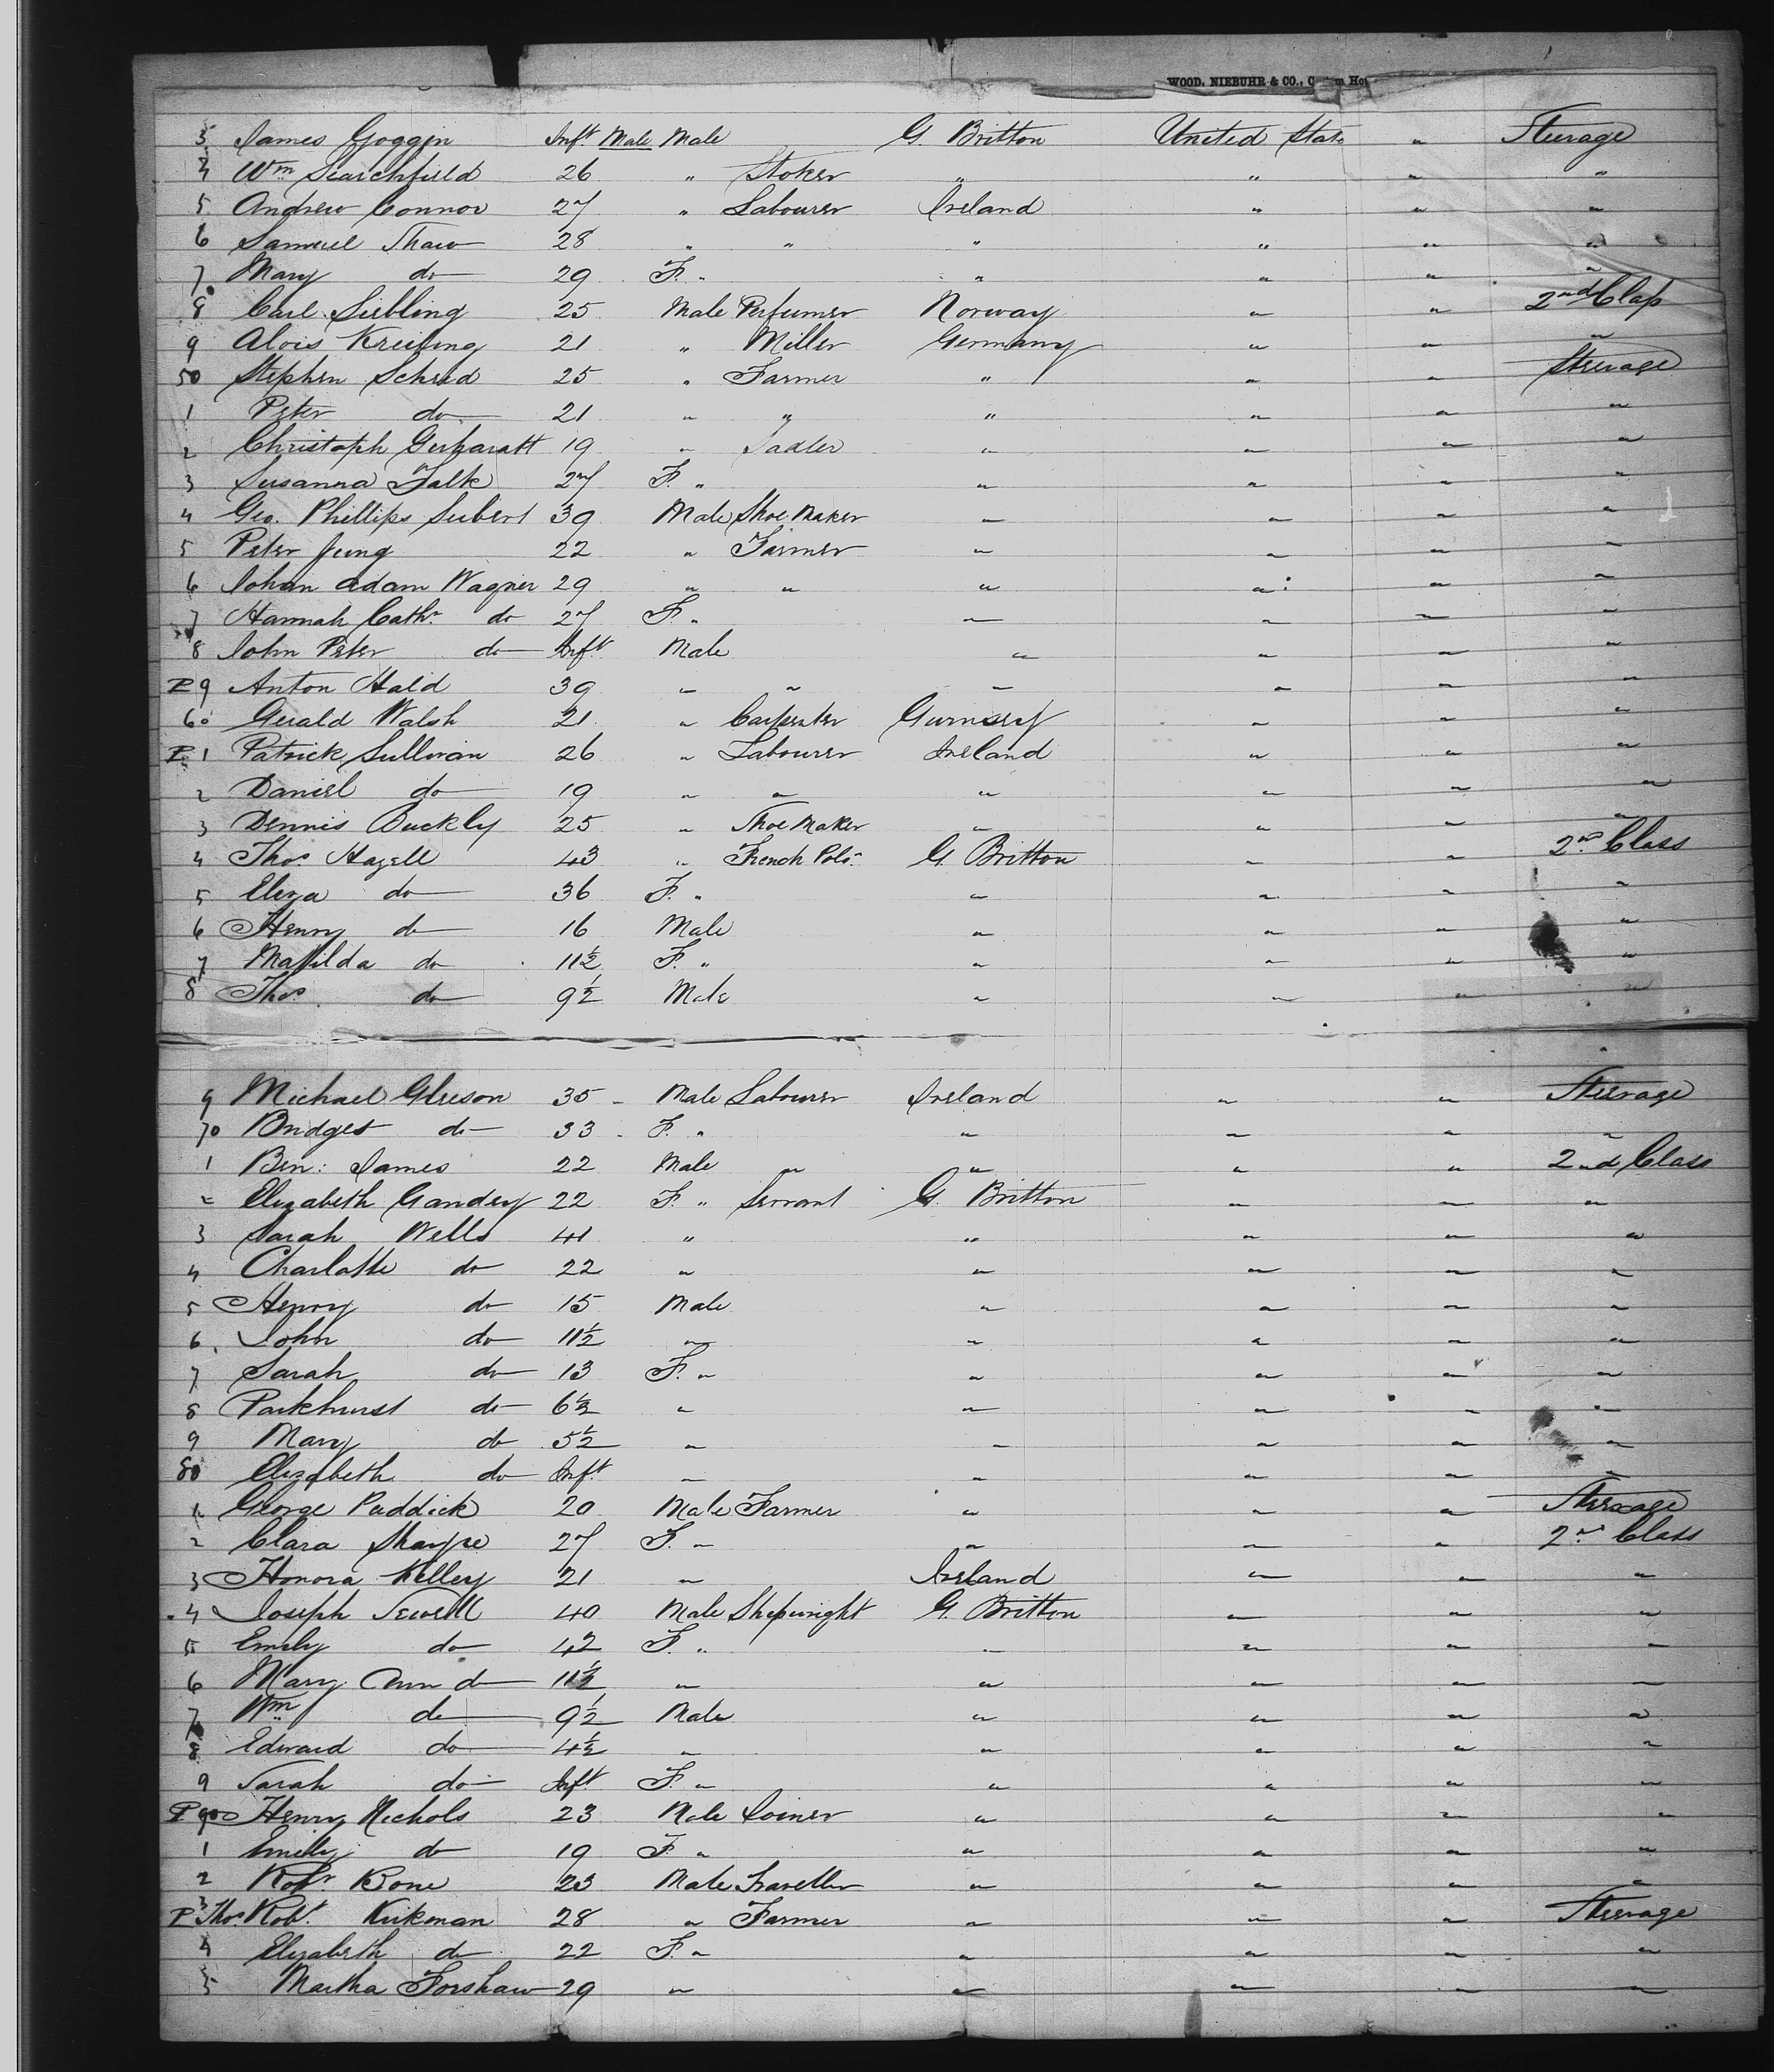 WOOD, NIEBUHR & CO.,
3 James Goggin Inft Male Male G. Britton United State " Steerage
4 Wm Searchfield 26 " Stoker " " " "
5 Andrew Connor 27 " Labourer Ireland " " "
6 Samuel Shaw 28 " " " " " "
7 Mary do 29 F. " " " " "
8 Carl Siebling 25 Male Perfumer Norway " " 2nd Class
9 Alois Kreiling 21 " Miller Germany " " "
50 Stephen Schred 25 " Farmer " " " Steerage
1 Peter do 21 " " " " " "
2 Christoph Gerharatt 19 " Sadler " " " "
3 Susanna Falk 27 F. " " " " "
4 Geo. Phillips Seibert 39 Male Shoe Maker " " " "
5 Peter Jung 22 " Farmer " " " "
6 Johan Adam Wagner 29 " " " " " "
7 Hannah Cath. do 27 F. " " " " "
8 John Peter do Inft Male " " " "
P 9 Anton Hald 39 " " " " " "
60 Gerald Walsh 21 " Carpenter Gurnsey " " "
P 1 Patrick Sullivan 26 " Labourer Ireland " " "
2 Daniel do 19 " " " " " "
3 Dennis Buckly 25 " Shoe Maker " " " "
4 Thos Hazell 43 " French Pols G. Britton " " 2nd Class
5 Eliza do 36 F. " " " " "
6 Henry do 16 Male " " " "
7 Matilda do 11½ F. " " " " "
8 Thos do 9½ Male " " " "
9 Michael Gleeson 35 Male Labourer Ireland " " Steerage
70 Bridget do 33 F. " " " " "
1 Ben: James 22 Male " " " " 2nd Class
2 Elizabeth Gandey 22 F. " Servant G. Britton " " "
3 Sarah Wells 41 " " " " "
4 Charlotte do 22 " " " " "
5 Henry do 15 Male " " " "
6 John do 11½ " " " " "
7 Sarah do 13 F. " " " " "
8 Parkhurst do 6½ " " " " "
9 Mary do 5½ " " " " "
80 Elizabeth do Inft " " " " "
1 George Puddick 20 Male Farmer " " " Steerage
2 Clara Sharpe 27 F. " " " " 2nd Class
3 Honora Kelley 21 " Ireland " " "
4 Joseph Sewell 40 Male Shipwright G. Britton " " "
5 Emily do 42 F. " " " " "
6 Mary Ann do 11½ " " " " "
7 Wm do 9½ Male " " " "
8 Edward do 4½ " " " " "
9 Sarah do Inft F. " " " " "
P 90 Henry Nichols 23 Male Joiner " " " "
1 Emily do 19 F " " " " "
2 Robt Bone 23 Male Traveller " " " "
P 3 Thos Robt. Kirkman 28 " Farmer " " " Steerage
4 Elizabeth do 22 F. " " " " "
5 Martha Forshaw 29 " " " " "